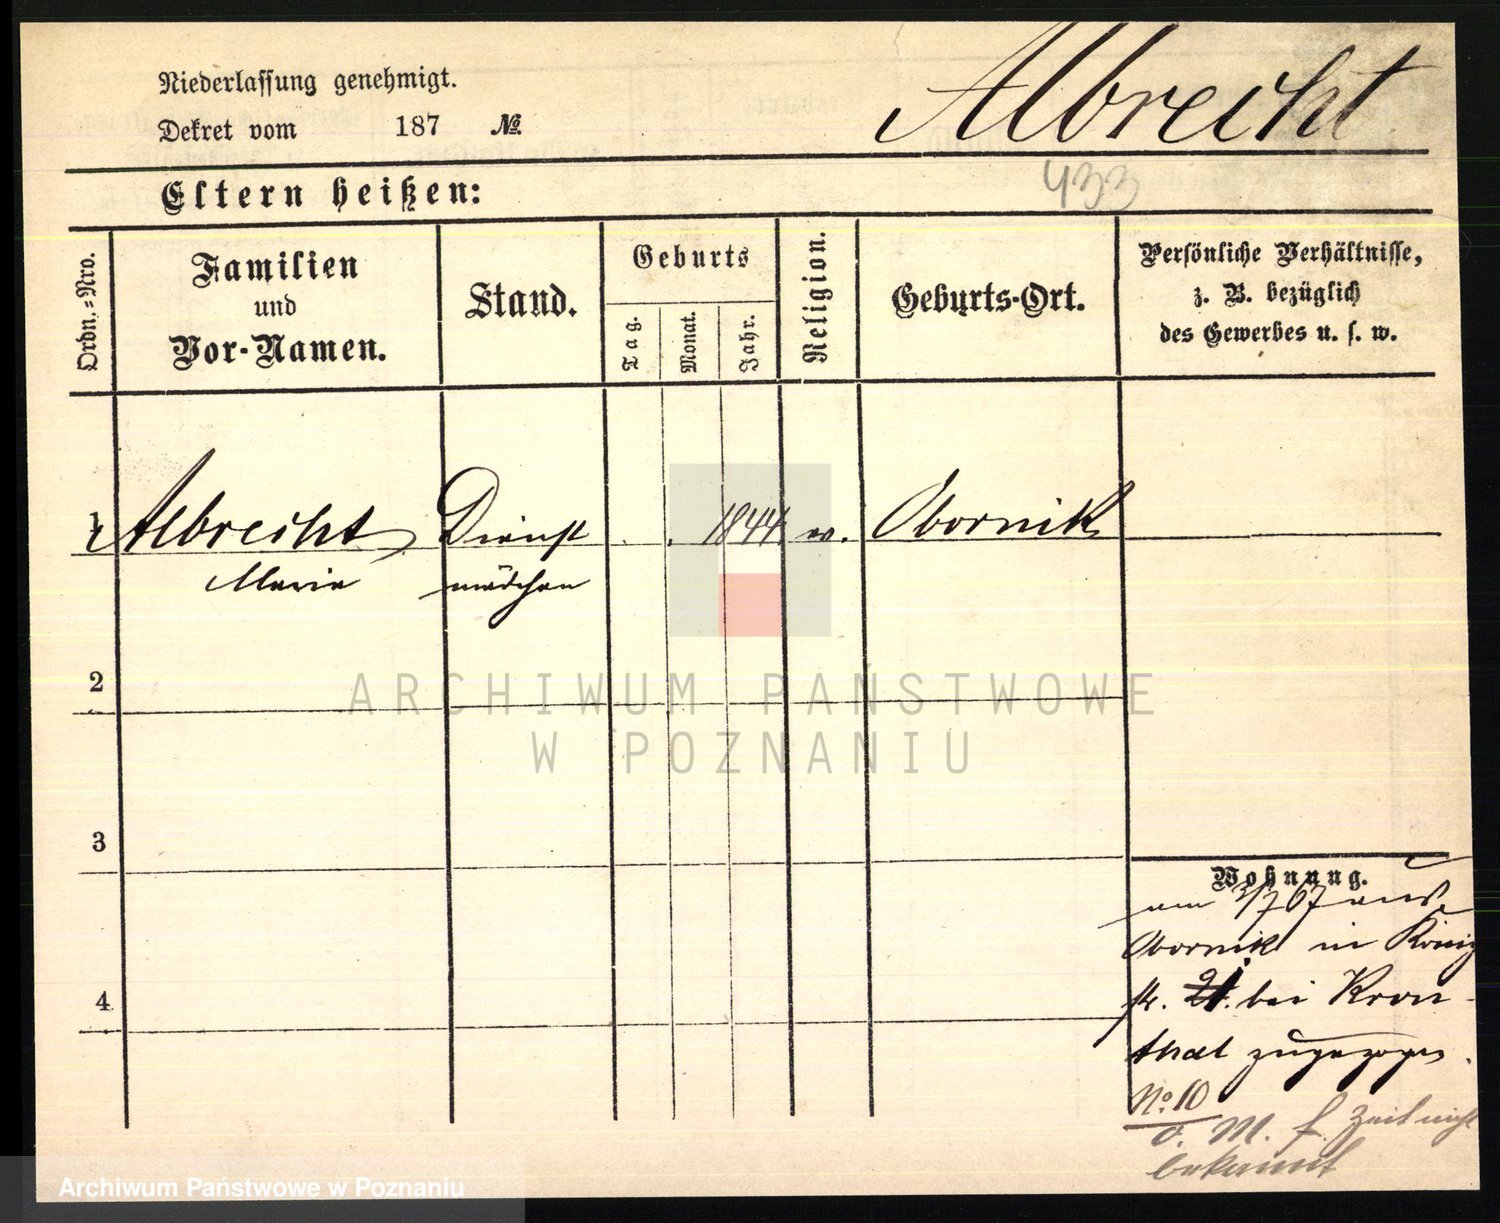 Niederlassung genehmigt.
Dekret vom 187 №
Albrecht
433
Eltern heißen:
Ordn.-Nro.
Familien und Vor-Namen.
Stand.
Geburts
Tag.
Monat.
Jahr.
Religion.
Geburts-Ort.
Persönliche Verhältnisse,
z. B. bezüglich
des Gewerbes u. s. w.
1 Albrecht Dienst 1844. Obornik
Marie mädchen
2
ARCHIWUM PAŃSTWOWE
W POZNANIU
3
Wohnung.
am 3/7 67 aus
Obornik in König
str. 21. bei Kron-
thal zugezogen.
No. 10
o. M. f. Zeit nicht
bekannt
4
Archiwum Państwowe w Poznaniu